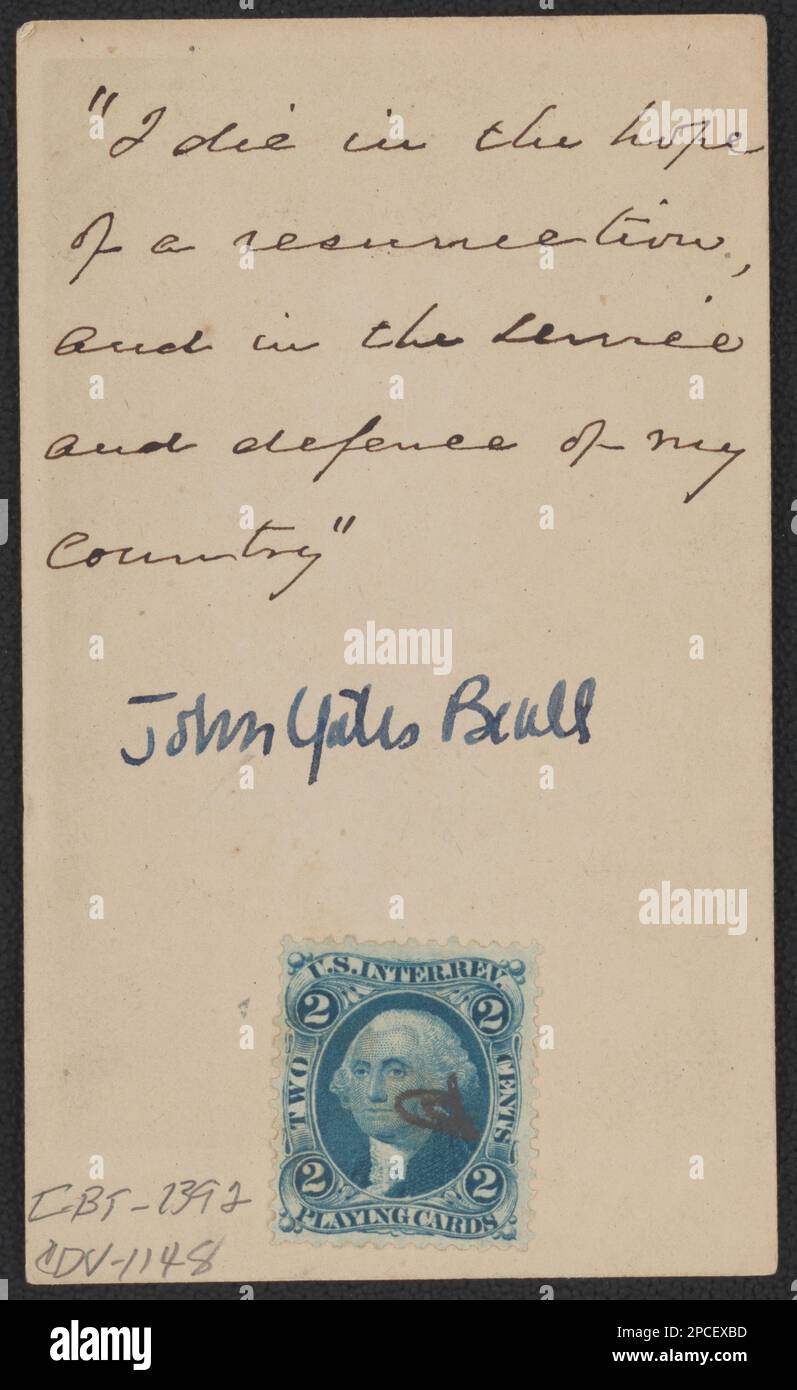 "I die in the hope
of a resurrection,
and in the service
and defence of my
Country"
John Yates Beall
U.S. INTER. REV.
2 2
TWO CENTS
2 2
PLAYING CARDS
CDV-1148
alamy
Image ID: 2PCEXBD
www.alamy.com